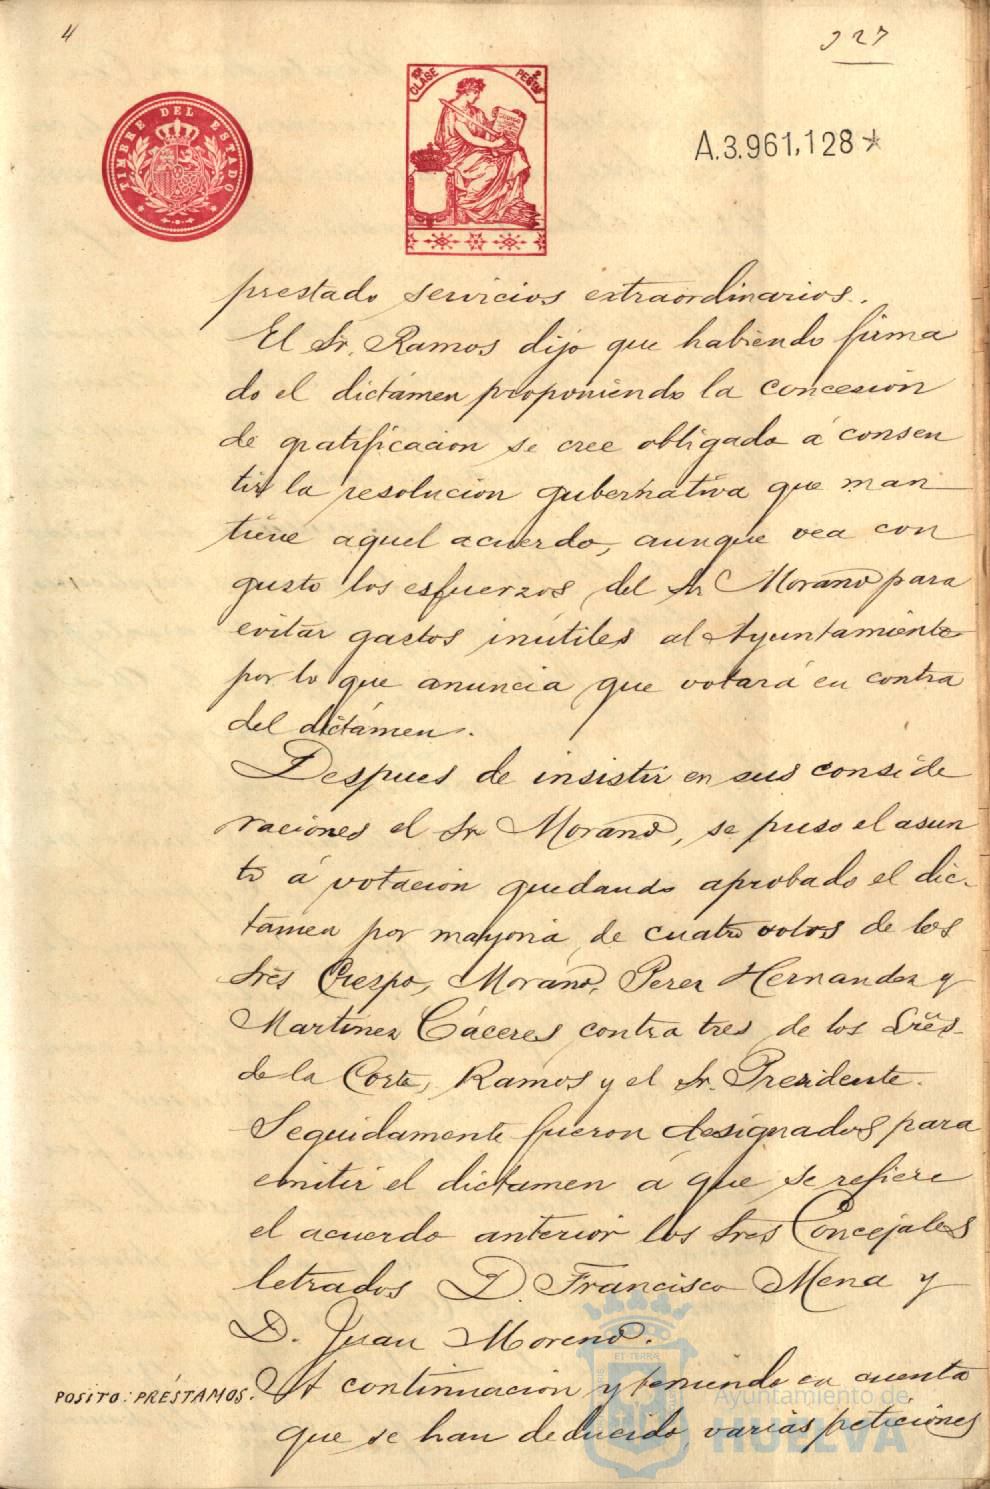 4
327
TIMBRE DEL ESTADO
10ª CLASE
2 PESETAS
A.3.961,128*
prestado servicios extraordinarios.
El Sr. Ramos dijo que habiendo firma
do el dictámen proponiendo la concesión
de gratificacion se cree obligado á consen
tir la resolucion gubernativa que man
tiene aquel acuerdo, aunque vea con
gusto los esfuerzos del Sr Morano para
evitar gastos inútiles al Ayuntamiento
por lo que anuncia que votará en contra
del dictámen.
Despues de insistir en sus conside
raciones el Sr Morano, se puso el asun
to á votación quedando aprobado el dic-
tamen por mayoria de cuatro votos de los
Srēs Crespo, Morano, Perez Hernandez y
Martinez Cáceres contra tres de los Srēs.
de la Corte, Ramos y el Sr. Presidente.
Seguidamente fueron designados para
emitir el dictamen á que se refiere
el acuerdo anterior los Sres Concejales
letrados D. Francisco Mena y
D. Juan Moreno.
POSITO: PRÉSTAMOS. A continuacion y teniendo en cuenta
que se han deducido varias peticiones
ET TERRA
Ayuntamiento de
HUELVA